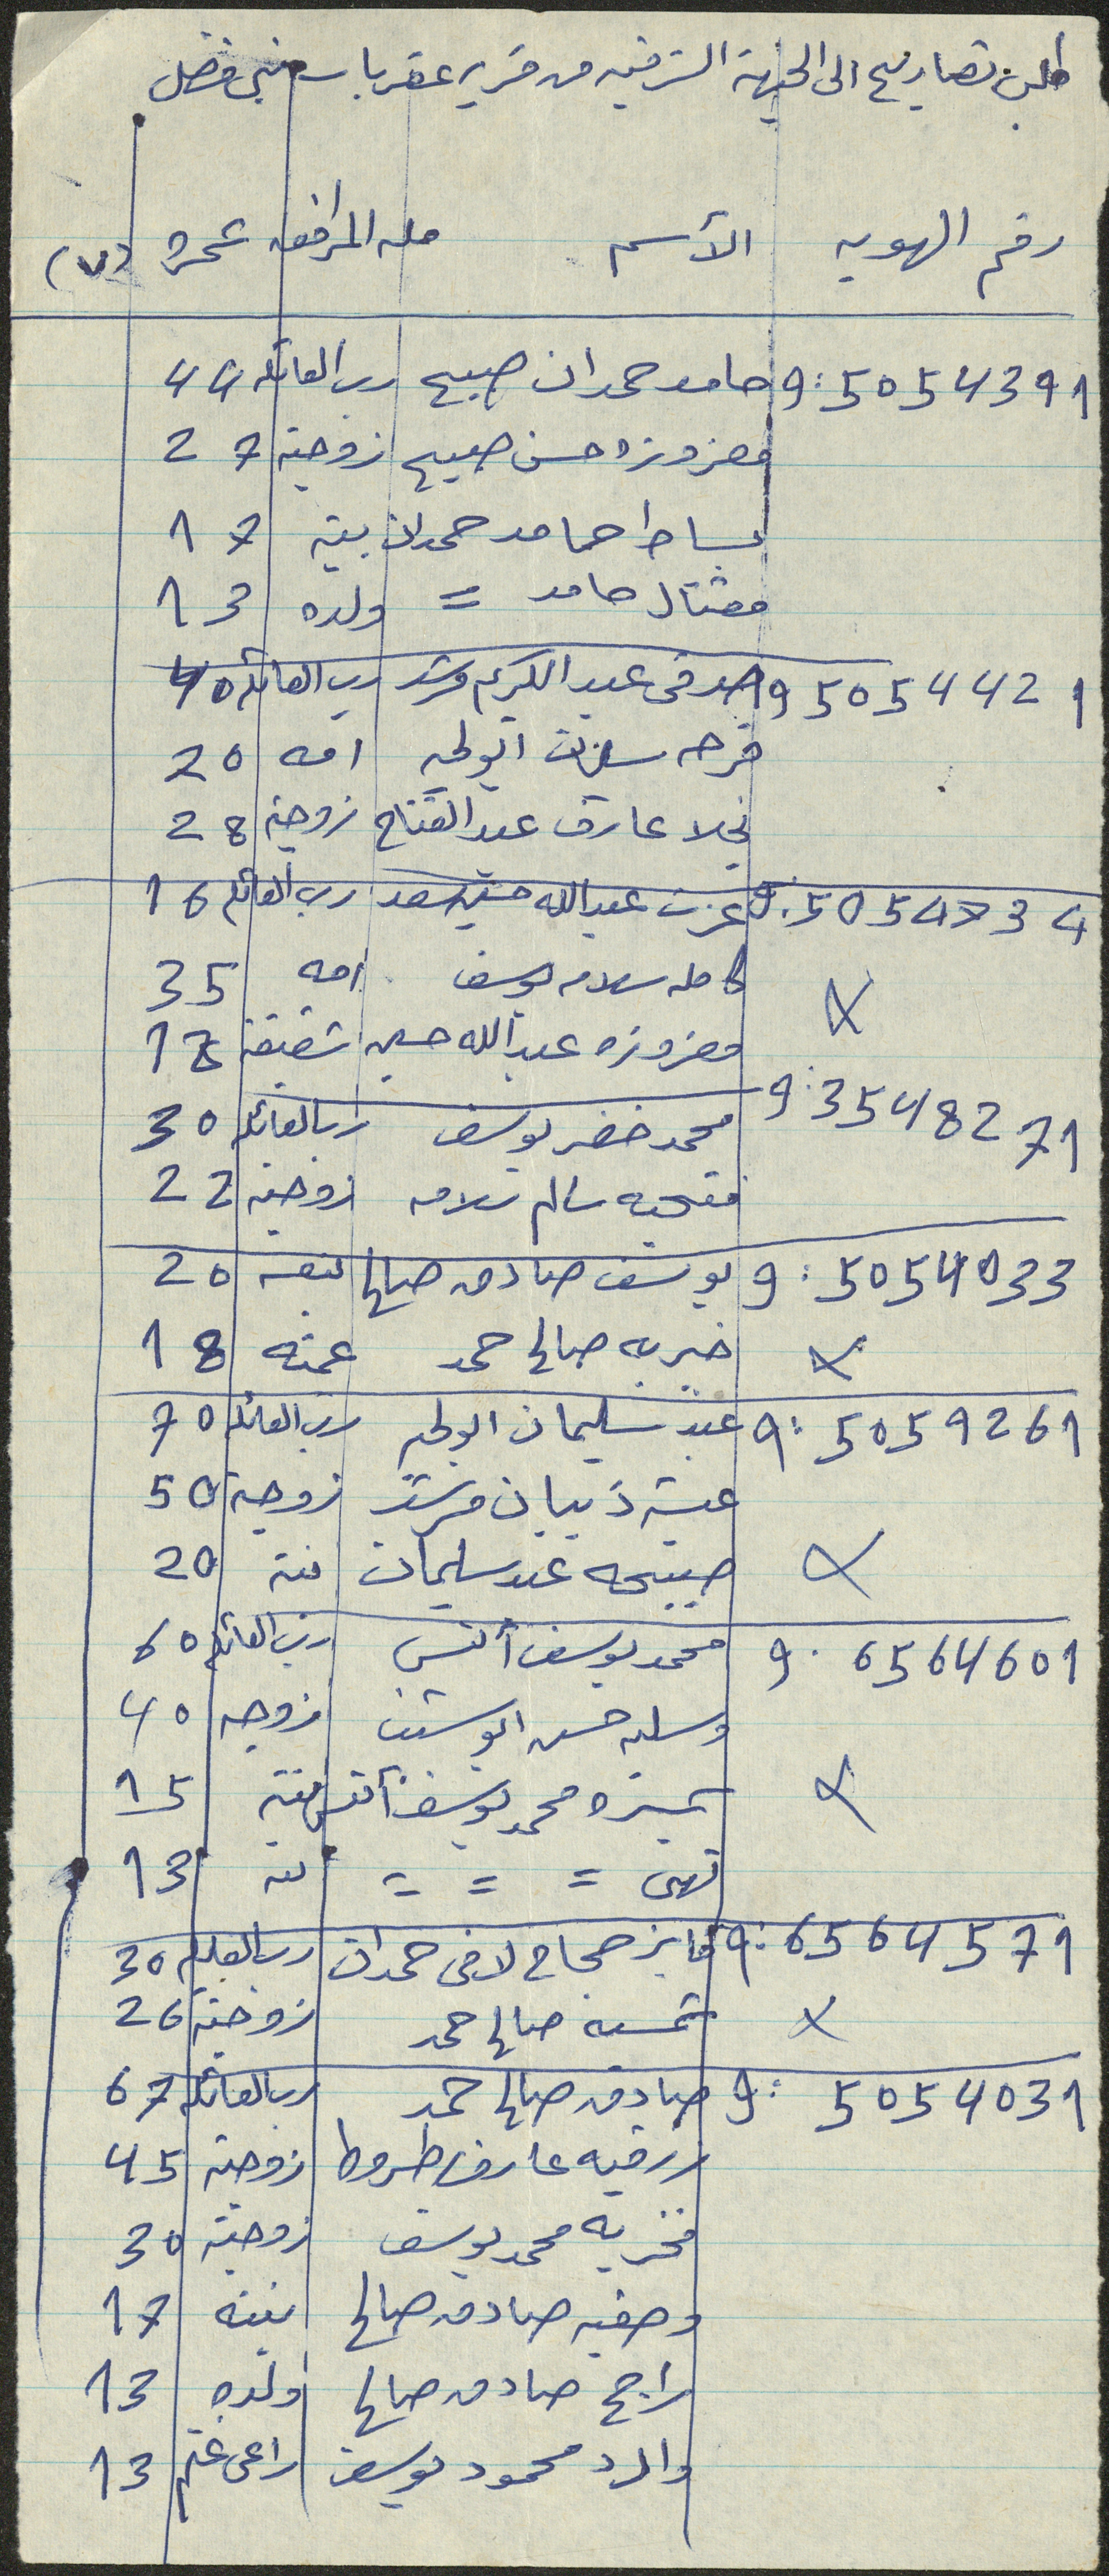 طلب تصاريح الى الجهة الشرقيه من قريه عقربا بني فضل
رقم الهويه الأسم صله المرافق عمره (٧)
9:5054391 حامد حمدان صبيح رب العائله 44
مفزوزه حسن صبيح زوجته 27
بساط حامد حمدان بنته 17
مثقال حامد = ولده 13
95054421 صدقي عبد الكريم مرشد رب العائله 40
فرحه امه 20
نجلا عارف عبد الفتاح زوجته 28
9:5054734 عزت عبدالله حسين سعد رب العائله 16
كامله سلامه يوسف امه 35
مفزوزه عبدالله حسين شقيقته 18
9:3548271 محمد خضر يوسف رب العائله 30
فتحيه سالم سلامه زوجته 22
9:5054033 يوسف صادق صالح لنفسه 20
خيريه صالح حمد عمته 18
9:5059261 عبد سليمان ابو لحيه رب العائله 70
عيشه ذيبان مرشد زوجته 50
صبيحه عبد سليمان بنته 20
9:6564601 محمد يوسف رب العائله 60
حسن زوجته 40
محمد يوسف بنته 15
نهى = = = بنته 13
9:6564571 فايز حجاج لافي حمدان رب العائله 30
شمسيه صالح حمد زوجته 26
9:5054031 صادق صالح حمد رب العائله 67
رقيه عارف زوجته 45
فخريه محمد يوسف زوجته 30
وصفيه صادق صالح بنته 17
راجح صادق صالح ولده 13
محمود يوسف راعي غنم 13